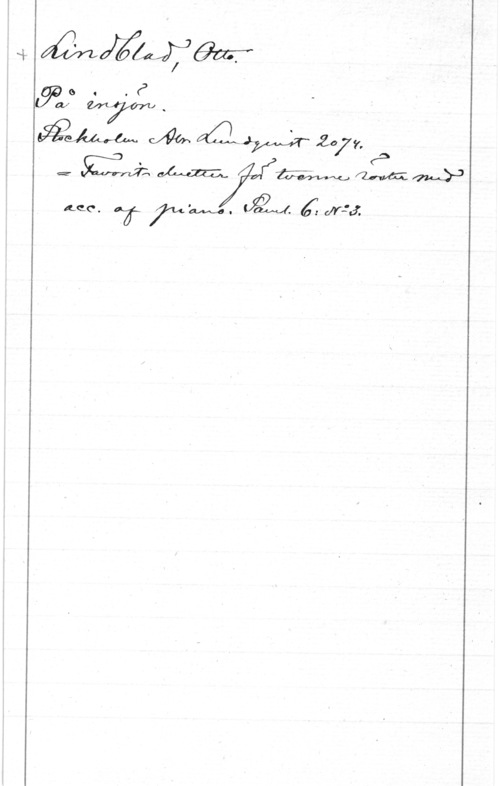 + Lindblad, Otto.
På insjön.
Stockholm Abr. Lundquist 2074.
= Favorit-duetter för tvenne röster med
acc. af piano. Saml. 6: Nº 3.